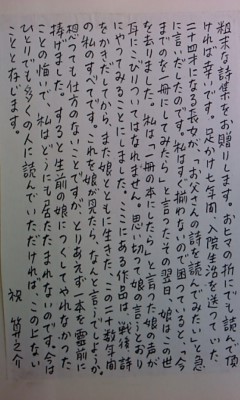 粗末な詩集をお贈りします。おヒマの折にでも読んで頂
ければ幸いです。足かけ七年間、入院生活を送っていた、
二十四才になる長女が、「お父さんの詩を読んでみたい」と急
に言いだしたのです。私はすぐ揃わないので困っていると、「今
までのを一冊にしてみたら」と言ったその翌日、娘はこの世
を去りました。私は、「一冊の本にしたら」と言った娘の声が
耳にこびりついてはなれません。思い切って娘の言うとおり
にやってみることにしました。ここにある作品は、戦後、詩
をかきだしてから、また娘とともに生きた、この二十数年間
の私のすべてです。これを娘が見たら、なんと言うでしょうか。
想っても仕方のないことですが、とりあえず一本を霊前に
捧げました。すると生前の娘につくしてやれなかった
ことの悔いで、私はどうにも居たたまれないのです。今は
ひとりでも多くの人に読んでいただければ、この上ない
ことと存じます。
祝 算之介